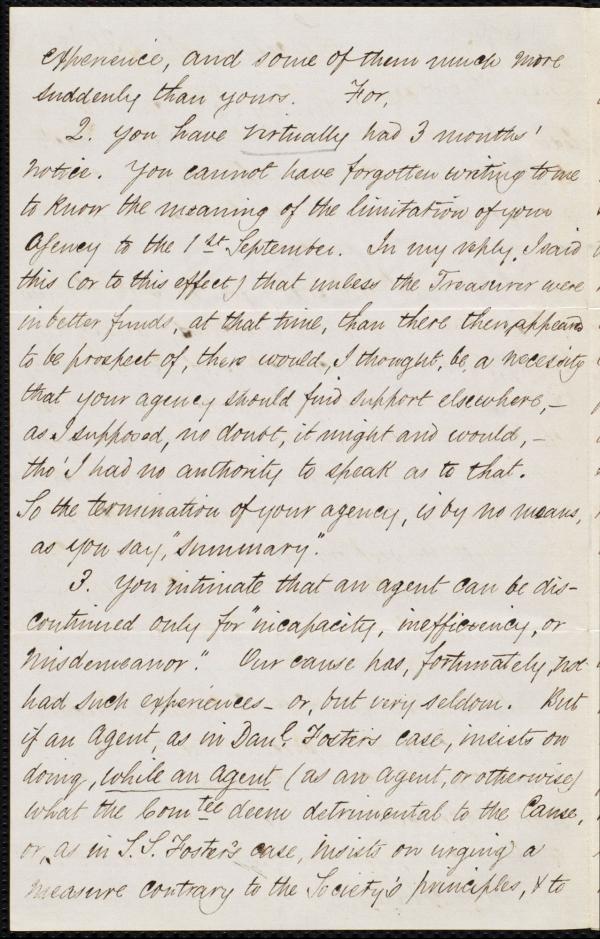 experience, and some of them much more
suddenly than yours. For,
2. You have virtually had 3 months'
notice. You cannot have forgotten writing to me
to know the meaning of the limitation of your
Agency to the 1st September. In my reply, I said
this (or to this effect) that unless the Treasurer were
in better funds, at that time, than there then appeared
to be prospect of, there would, I thought, be a necessity
that your agency should find support elsewhere,–
as I supposed, no doubt, it might and would,–
tho' I had no authority to speak as to that.
So the termination of your agency, is by no means,
as you say, "summary".
3. You intimate that an agent can be dis-
continued only for "incapacity, inefficiency, or
misdemeanor." Our cause has, fortunately, not
had such experiences – or, but very seldom. But
if an Agent, as in Danl. Foster's case, insists on
doing, while an agent (as an agent, or otherwise)
what the Comtee deem detrimental to the Cause,
or, as in S.S. Foster's case, insists on urging a
measure contrary to the Society's principles, & to